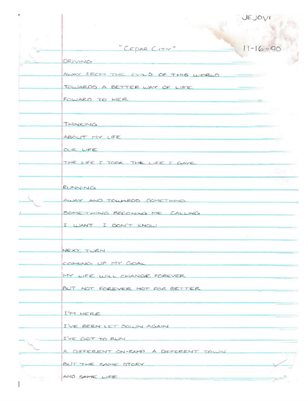 JEJOVI
"CEDAR CITY" 11-16-00
DRIVING
AWAY FROM THE COLD OF THIS WORLD
TOWARDS A BETTER WAY OF LIFE
FOWARD TO HER
THINKING
ABOUT MY LIFE
OUR LIFE
THE LIFE I TOOK THE LIFE I GAVE
RUNNING
AWAY AND TOWARDS SOMETHING
SOMETHING BECONING ME CALLING
I WANT I DON'T KNOW
NEXT TURN
COMING UP MY GOAL
MY LIFE WILL CHANGE FOREVER
BUT NOT FOREVER NOT FOR BETTER
I'M HERE
I'VE BEEN LET DOWN AGAIN
I'VE GOT TO RUN
A DIFFERENT ON-RAMP A DIFFERENT TOWN
BUT THE SAME STORY
AND SAME LIFE